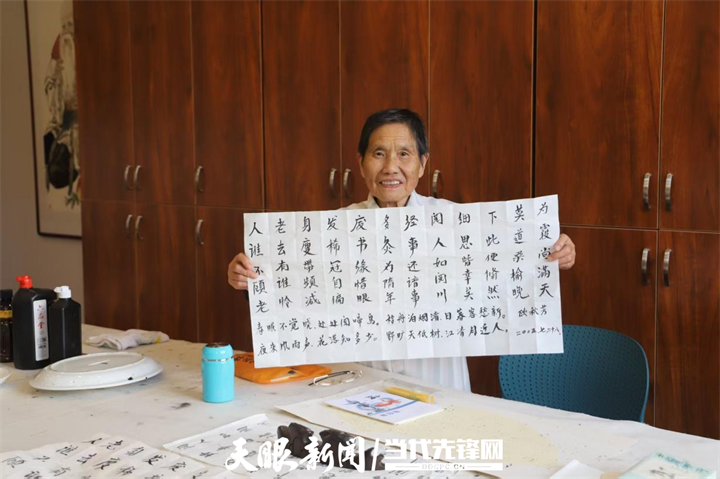 人谁不顾老
老去有谁怜
身廋带频减
发稀冠自偏
废书缘惜眼
多灸为隋年
经事还谙事
阅人如阅川
细思皆幸矣
下此便翛然
莫道桑榆晚
为霞尚满天
春眠不觉晓，处处闻啼鸟。
夜来风雨声，花落知多少。
移舟泊烟渚，日暮客愁新。
野旷天低树，江清月近人。
二〇二五.七.二十八
天眼新闻 当代先锋网